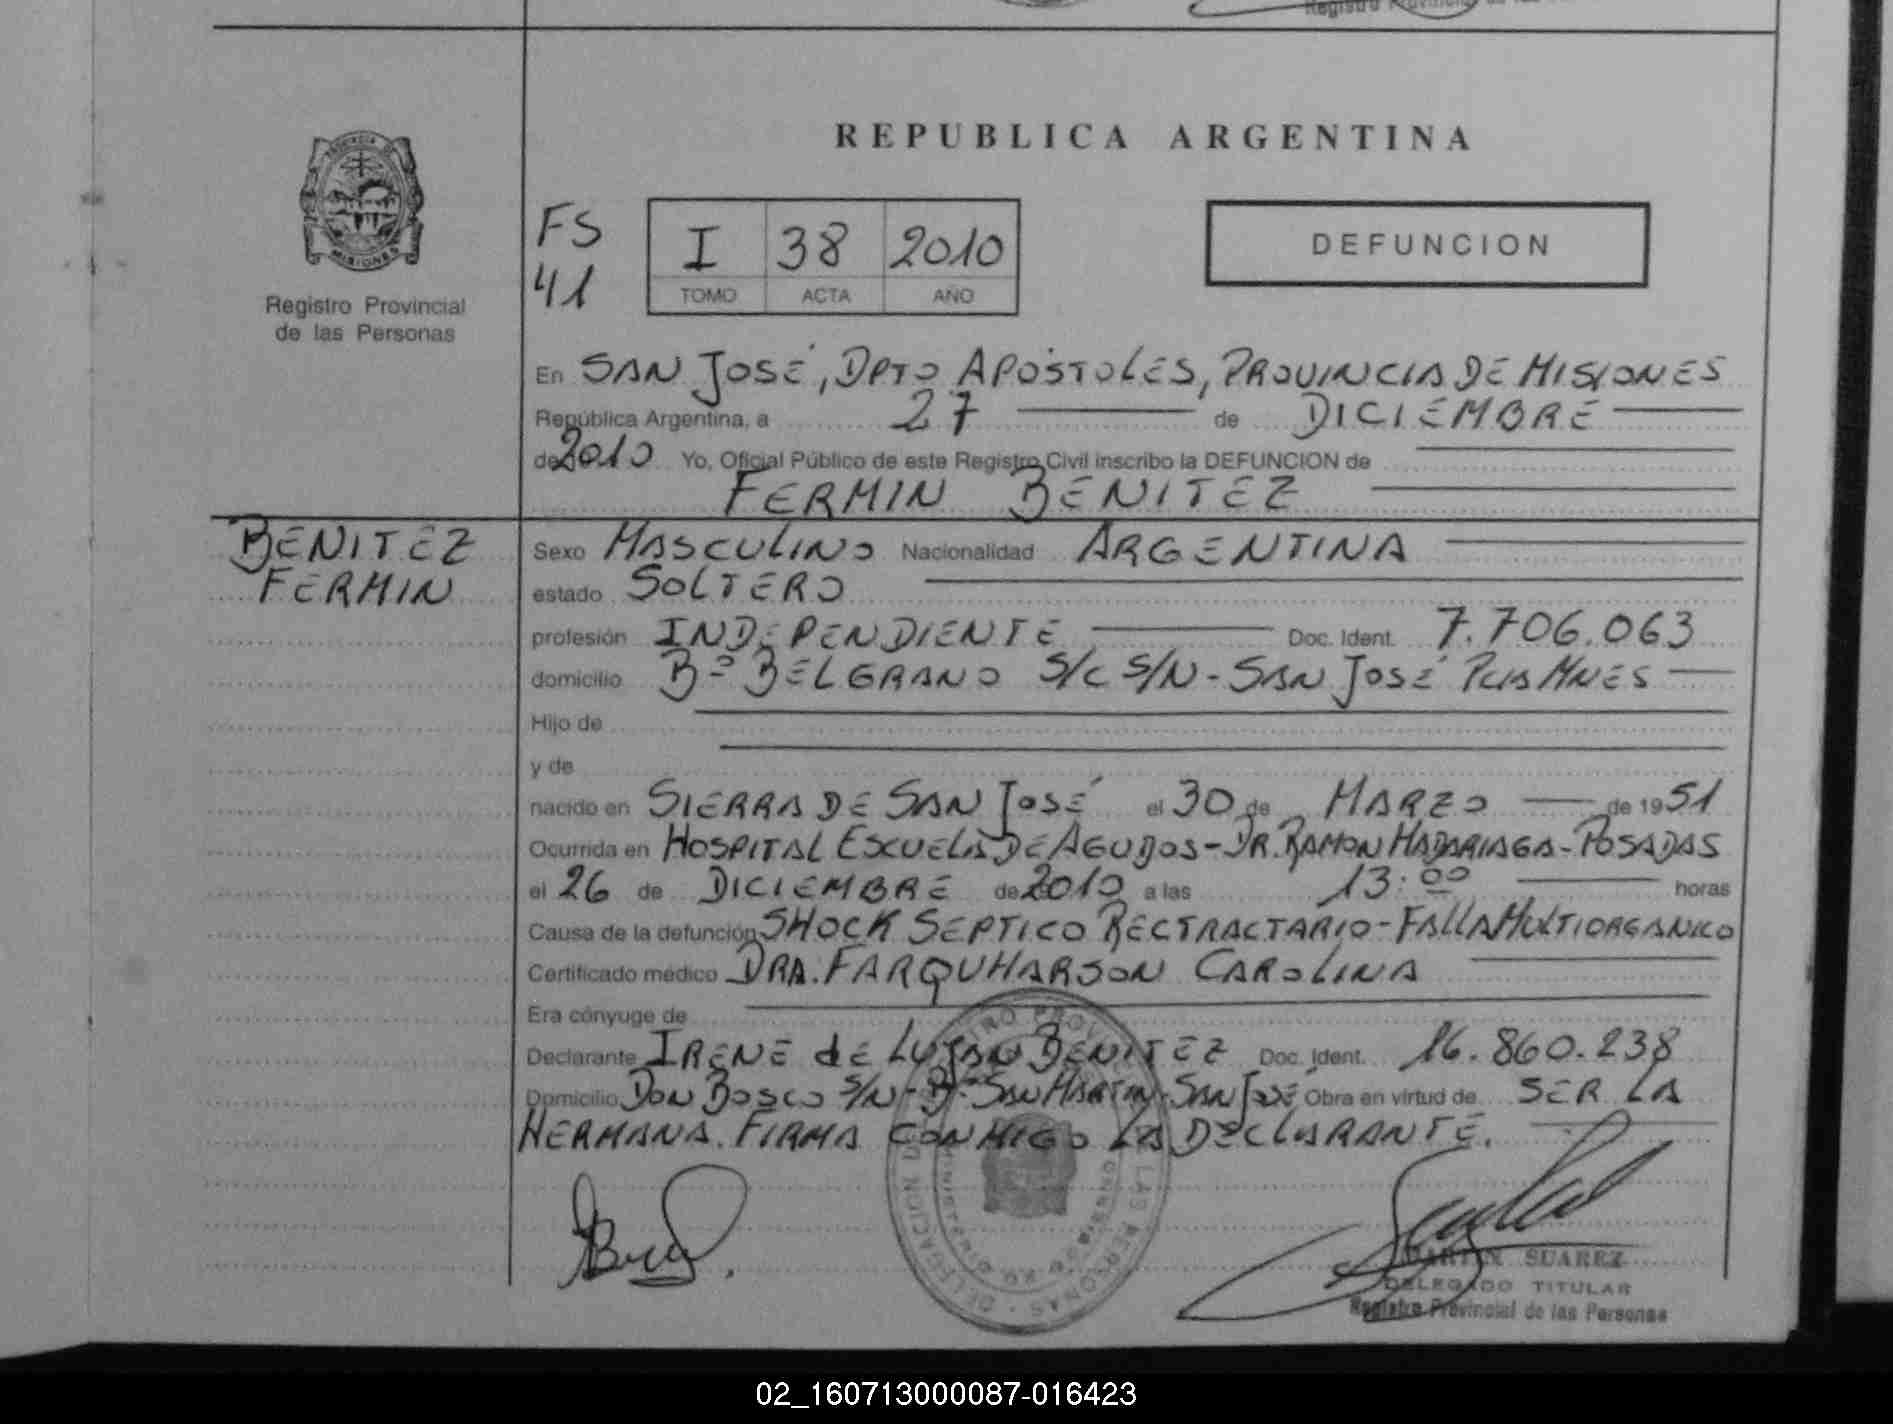 REPUBLICA ARGENTINA
MISIONES
Registro Provincial
de las Personas
FS
41
I 38 2010
TOMO ACTA AÑO
DEFUNCION
En SAN JOSÉ, DPTO APÓSTOLES, PROVINCIA DE MISIONES
República Argentina, a 27 de DICIEMBRE
de 2010 Yo, Oficial Público de este Registro Civil inscribo la DEFUNCION de
FERMIN BENITEZ
BENITEZ
FERMIN
Sexo MASCULINO Nacionalidad ARGENTINA
estado SOLTERO
profesión INDEPENDIENTE Doc. Ident. 7.706.063
domicilio Bº BELGRANO S/C S/N - SAN JOSÉ PCIA MNES
Hijo de
y de
nacido en SIERRA DE SAN JOSÉ el 30 de MARZO de 1951
Ocurrida en HOSPITAL ESCUELA DE AGUDOS - DR. RAMON MADARIAGA - POSADAS
el 26 de DICIEMBRE de 2010 a las 13:00 horas
Causa de la defunción SHOCK SEPTICO RECTRACTARIO - FALLA MULTIORGANICO
Certificado médico DRA. FARQUHARSON CAROLINA
Era cónyuge de
Declarante IRENE de LUJAN BENITEZ Doc. Ident. 16.860.238
Domicilio DON BOSCO S/N - Bº SAN MARTIN - SAN JOSÉ Obra en virtud de SER LA
HERMANA. FIRMA CONMIGO LA DECLARANTE.
MARTIN SUAREZ
DELEGADO TITULAR
Registro Provincial de las Personas
02_160713000087-016423